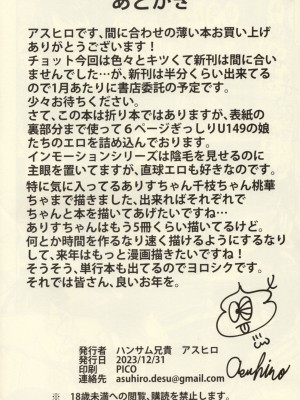 あとがき
アスヒロです、間に合わせの薄い本お買い上げ
ありがとうございます！
チョット今回は色々とキツくて新刊は間に合い
ませんでした…が、新刊は半分くらい出来てる
ので1月あたりに書店委託の予定です。
少々お待ちください。
さて、この本は折り本ではありますが、表紙の
裏部分まで使って6ページぎっしりU149の娘
たちのエロを詰め込んでおります。
インモーションシリーズは陰毛を見せるのに
主眼を置いてますが、直球エロも好きなのです。
特に気に入ってるありすちゃん千枝ちゃん桃華
ちゃまで描きました、出来ればそれぞれで
ちゃんと本を描いてあげたいですね…
ありすちゃんはもう5冊くらい描いてるけど。
何とか時間を作るなり速く描けるようになるなり
して、来年はもっと漫画描きたいですね！
そうそう、単行本も出てるのでヨロシクです。
それでは皆さん、良いお年を。
Asuhiro
発行者 ハンサム兄貴 アスヒロ
発行日 2023/12/31
印刷 PICO
連絡先 asuhiro.desu@gmail.com
＊18歳未満への閲覧、購読を禁止します。